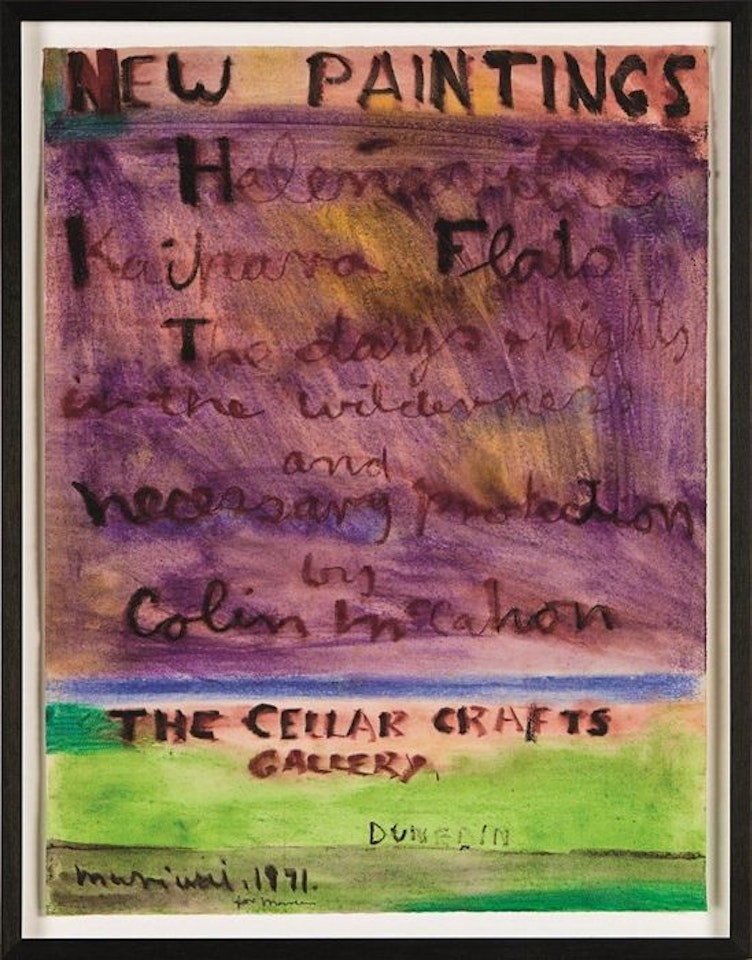 NEW PAINTINGS
Helensville
Kaipara Flats
The days & nights
in the wilderness
and
necessary protection
by
Colin McCahon
THE CELLAR CRAFTS
GALLERY,
DUNEDIN
muriwai, 1971.
for